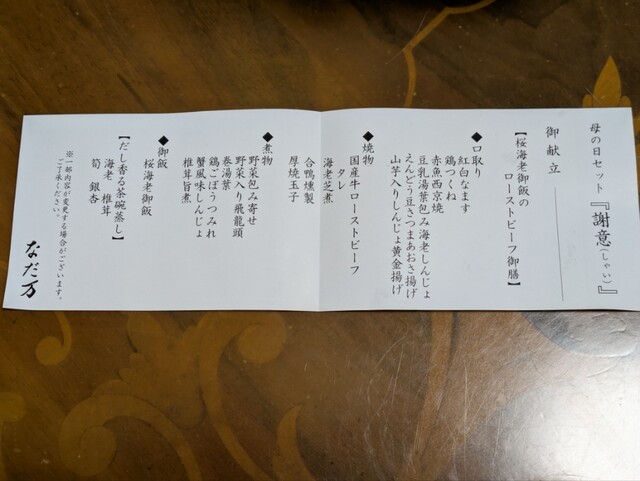 母の日セット『謝意(しゃい)』
御献立
【桜海老御飯の
ローストビーフ御膳】
◆口取り
紅白なます
鶏つくね
赤魚西京焼
豆乳湯葉包み海老しんじょ
えんどう豆さつまあおさ揚げ
山芋入りしんじょ黄金揚げ
◆焼物
国産牛ローストビーフ
タレ
海老芝煮
合鴨燻製
厚焼玉子
◆煮物
野菜包み寄せ
野菜入り飛龍頭
巻湯葉
鶏ごぼうつみれ
蟹風味しんじょ
椎茸旨煮
◆御飯
桜海老御飯
【だし香る茶碗蒸し】
海老 椎茸
筍 銀杏
※一部内容が変更する場合がございます。
ご了承ください。
なだ万